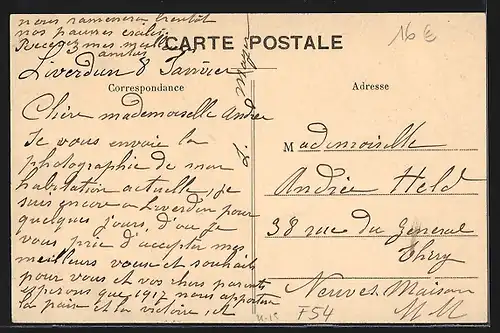 nous ramenera bientôt
nos pauvres exilés
Recevez mes meilleures
amitiés
CARTE POSTALE
16 €
Liverdun 8 Janvier
Correspondance
Adresse
Chère mademoiselle Andrée
Je vous envoie la
photographie de mon
habitation actuelle, je
suis encore a Liverdun pour
quelques jours, d'ou je
vous prie d'accepter mes
meilleurs voeux et souhaits
pour vous et vos chers parents
esperons que 1917 nous apportera
la paix et la victoire, et
Mademoiselle
Andrée Held
38 rue du General
Thiry
Neuves Maison
M M
F54